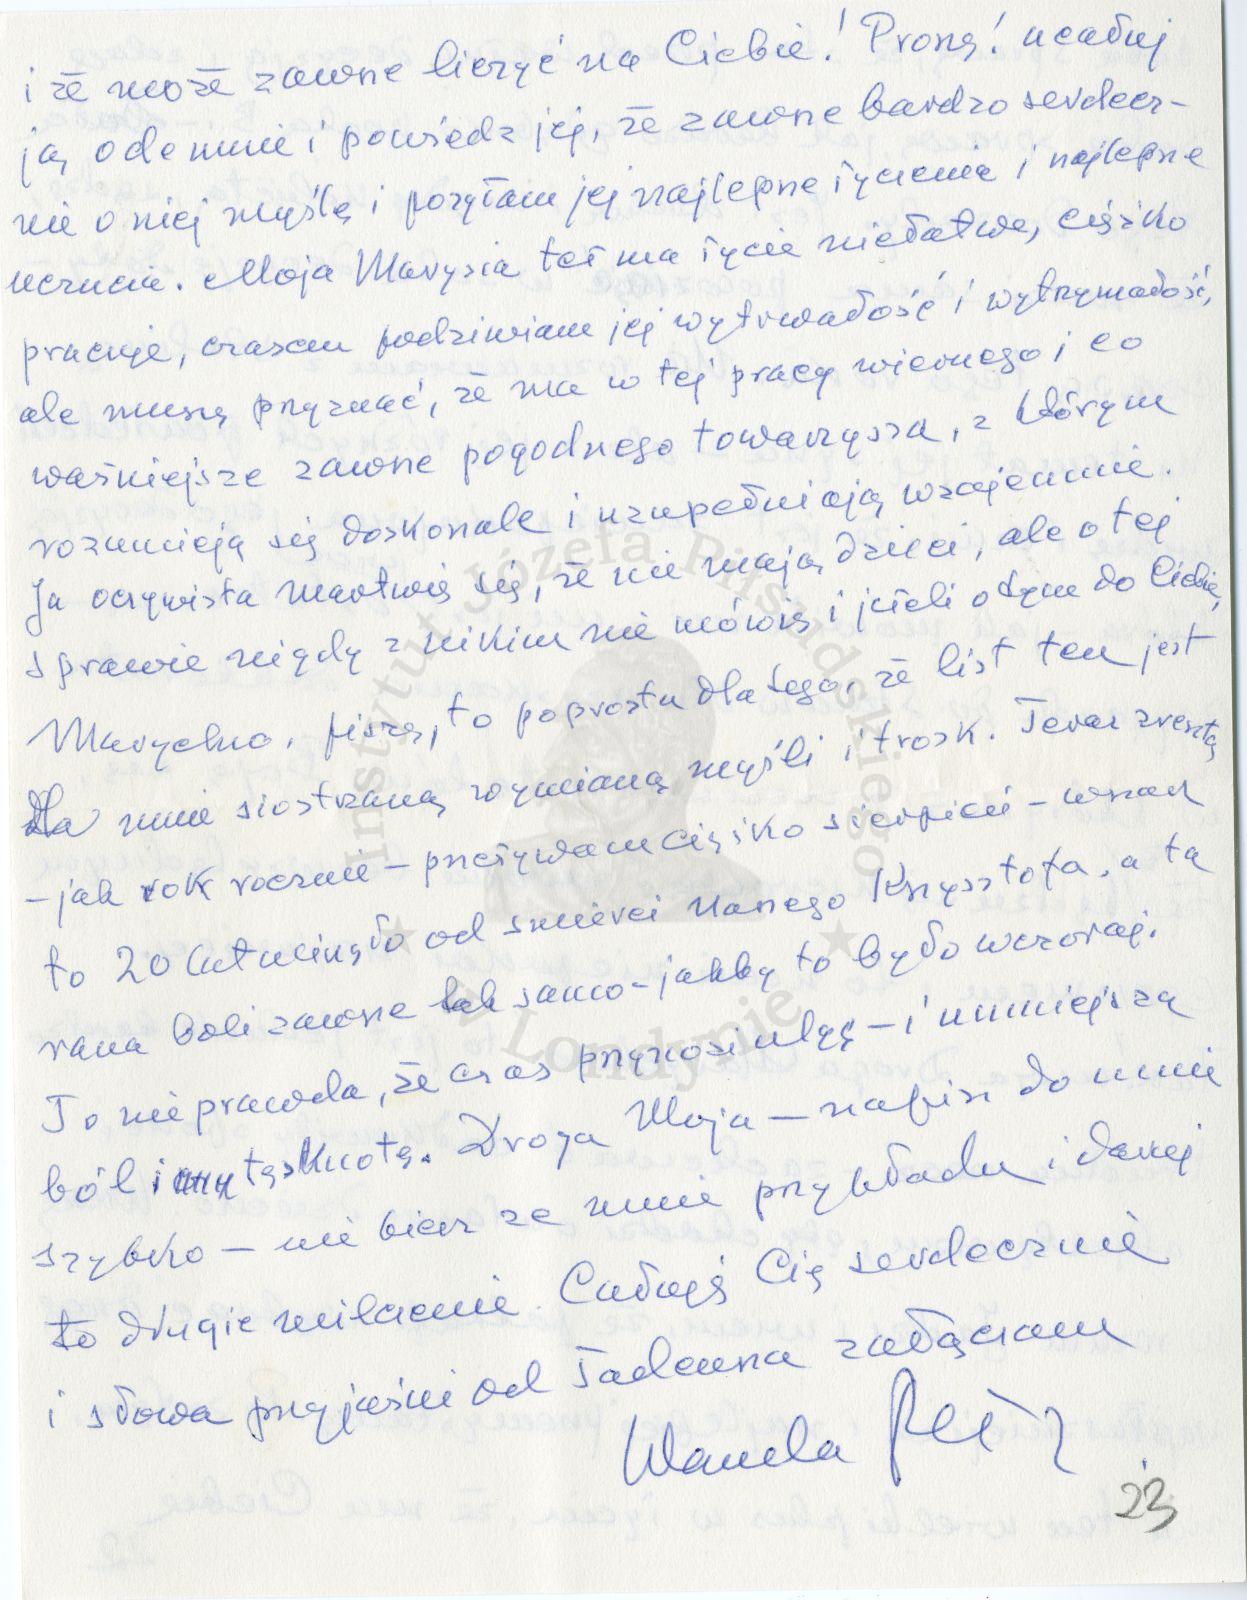 i że może zawsze liczyć na Ciebie! Proszę! ucałuj
ją odemnie i powiedz jej, że zawsze bardzo serdecz-
nie o niej myślę i posyłam jej najlepsze życzenia i najlepsze
uczucia. Moja Marysia też ma życie niełatwe, ciężko
pracuje, czasem podziwiam jej wytrwałość i wytrzymałość,
ale muszę przyznać, że ma w tej pracy wiernego i co
ważniejsze zawsze pogodnego towarzysza, z którym
rozumieją się doskonale i uzupełniają wzajemnie.
Ja oczywista martwię się, że nie mają dzieci, ale o tej
sprawie nigdy z nikim nie mówię i jeżeli o tym do Ciebie,
Marychno, piszę, to poprostu dlatego, że list ten jest
dla mnie siostrzaną wymianą myśli i trosk. Teraz zresztą
- jak rok rocznie - przeżywam ciężko sierpień - wszak
to 20 lat minęło od śmierci naszego Krzysztofa, a ta
rana boli zawsze tak samo - jakby to było wczoraj.
To nieprawda, że czas przynosi ulgę - i umniejsza
ból i tęsknotę. Droga Moja - napisz do mnie
szybko - nie bierz ze mnie przykładu i daruj
to długie milczenie. Całuję Cię serdecznie
i słowa przyjaźni od Tadeusza załączam
Wanda
23
Instytut Józefa Piłsudskiego
w Londynie